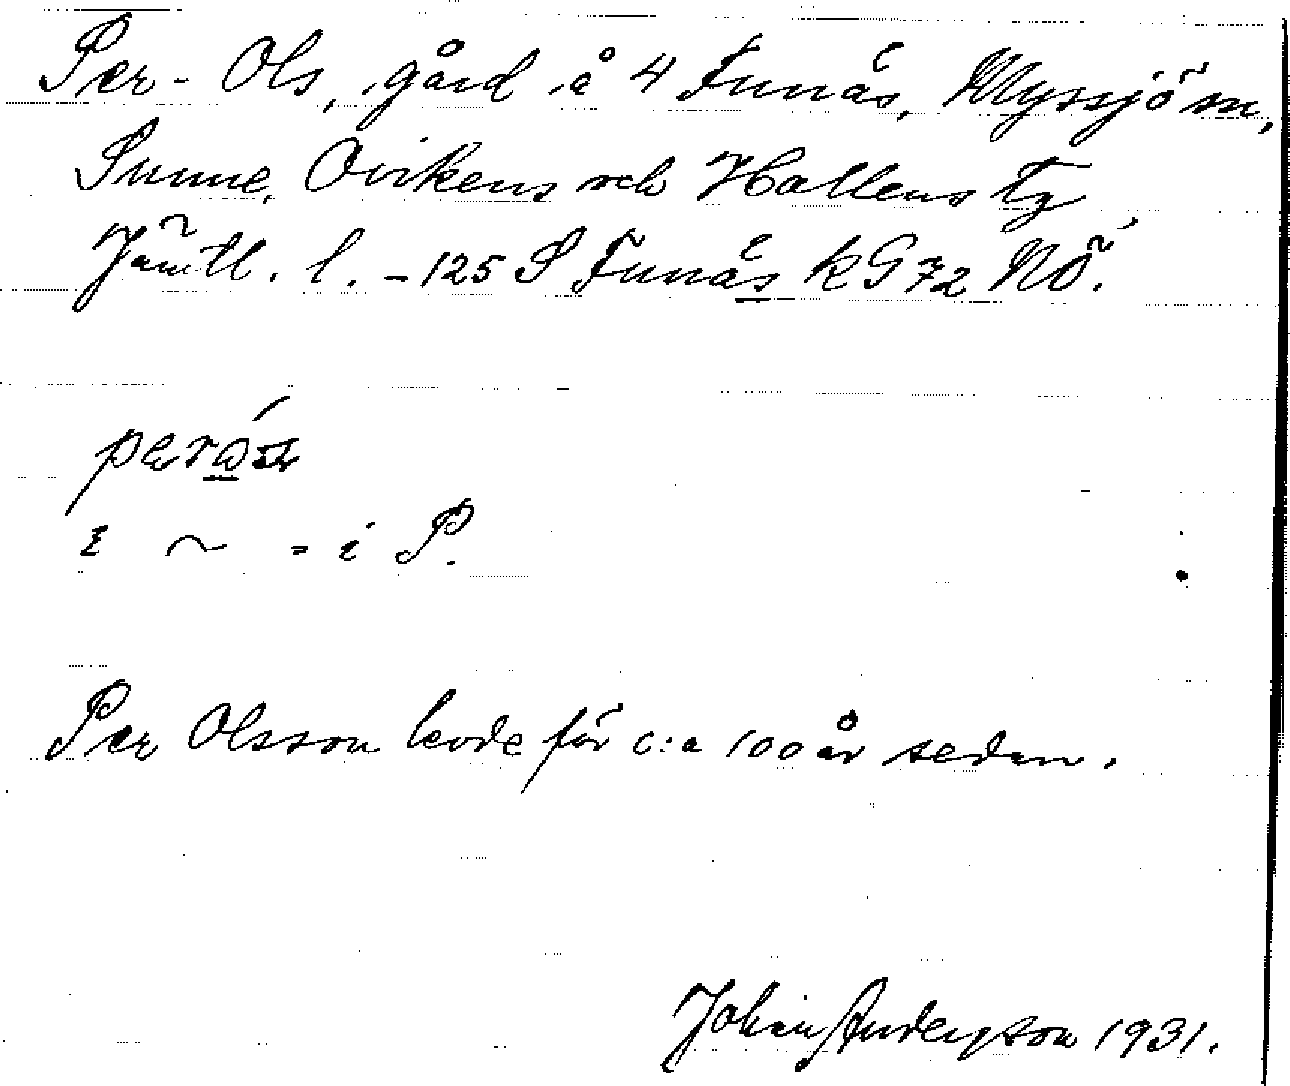 Per-Ols, gård å 4 Funäs, Myssjö sn,
Sunne, Ovikens och Hallens tg,
Jämtl. l. - 125 S Funäs k G 72 NÖ.
i ~ = i P.
Per Olsson levde för c:a 100 år sedan.
Johan Anderson 1931.